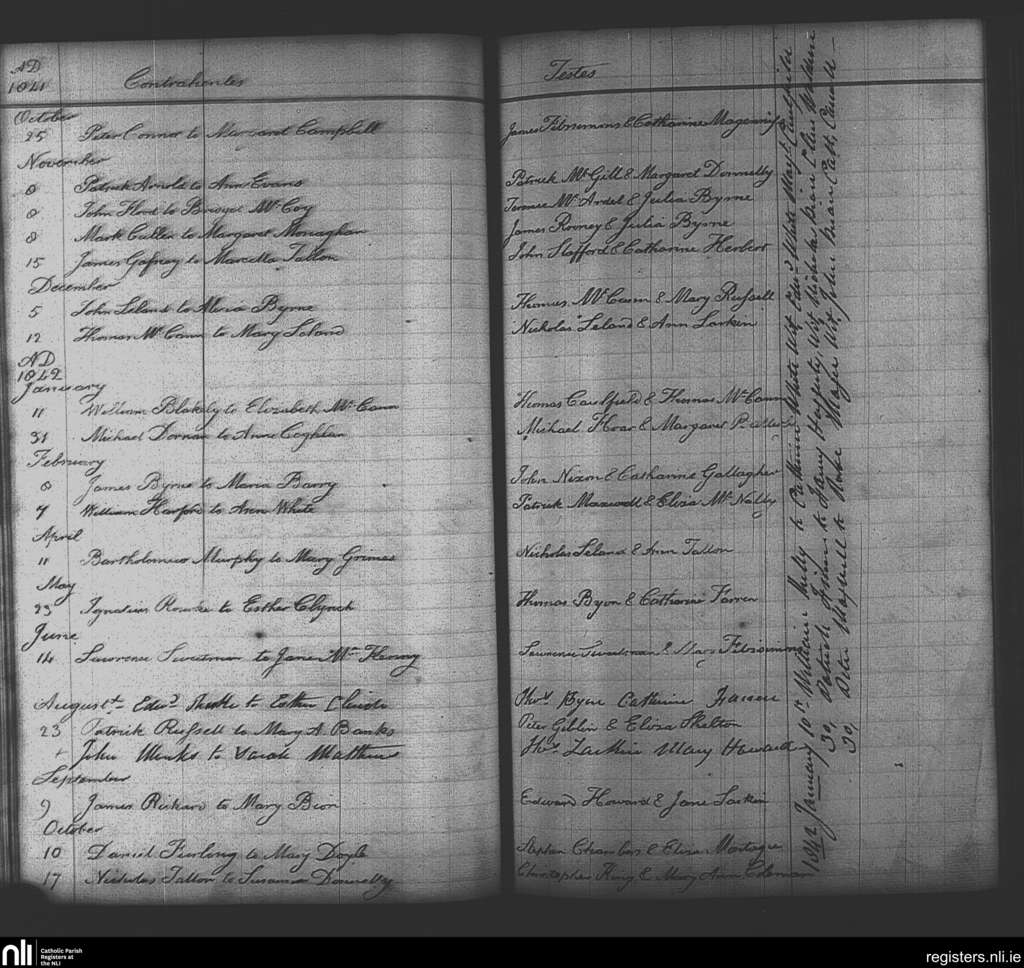 AD
1841
Contrahentes
Testes
October
25 Peter Connor to Margaret Campbell
James Fitzsimons & Catharine Magennis
November
8 Patrick Arnold to Ann Evans
Patrick McGill & Margaret Donnelly
8 John to Bridget McCoy
Terence McArdel & Julia Byrne
8 Mark Cullen to Margaret Monaghan
James Rooney & Julia Byrne
15 James Gafney to Marcella Tallon
John Stafford & Catharine Herbert
December
5 John Leland to Maria Byrne
Thomas McCann & Mary Russell
12 Thomas McCann to Mary Leland
Nicholas Leland & Ann Larkin
AD
1842
January
11 William Blakely to Elizabeth McCann
Thomas Caulfield & Thomas McCann
31 Michael Dornan to Anne Coghlan
Michael Hoar & Margaret
February
8 James Byrne to Maria Barry
John Nixon & Catharine Gallagher
7 William Harford to Ann White
Patrick Maxwell & Eliza McNally
April
11 Bartholomew Murphy to Mary Grimes
Nicholas Leland & Ann Tallon
May
23 Ignatius Rourke to Esther Clynch
Thomas Byrn & Catharine Farren
June
14 Lawrence Sweetman to Jane McHenry
Lawrence Sweetman & Mary Fitzsimons
August Edwd to Esther
Thos Byrne Catherine
23 Patrick Russell to Mary A. Banks
Peter Giblin & Eliza Skelton
John to Sarah Matthews
Thos Larkin Mary Howard
September
9 James Rickard to Mary Bion
Edward Howard & Jane Larkin
October
10 Daniel Furlong to Mary Doyle
Stephen Chambers & Eliza Montague
17 Nicholas Tallon to Susanna Donnelly
Christopher King & Mary Ann Coleman
1842 January 10th William to Catherine White Wit Edwd White Mary
30, Patrick to Jane Wit Nicholas
30, Peter Maxwell to Wit John Cath.
nli
Catholic Parish
Registers at
the NLI
registers.nli.ie